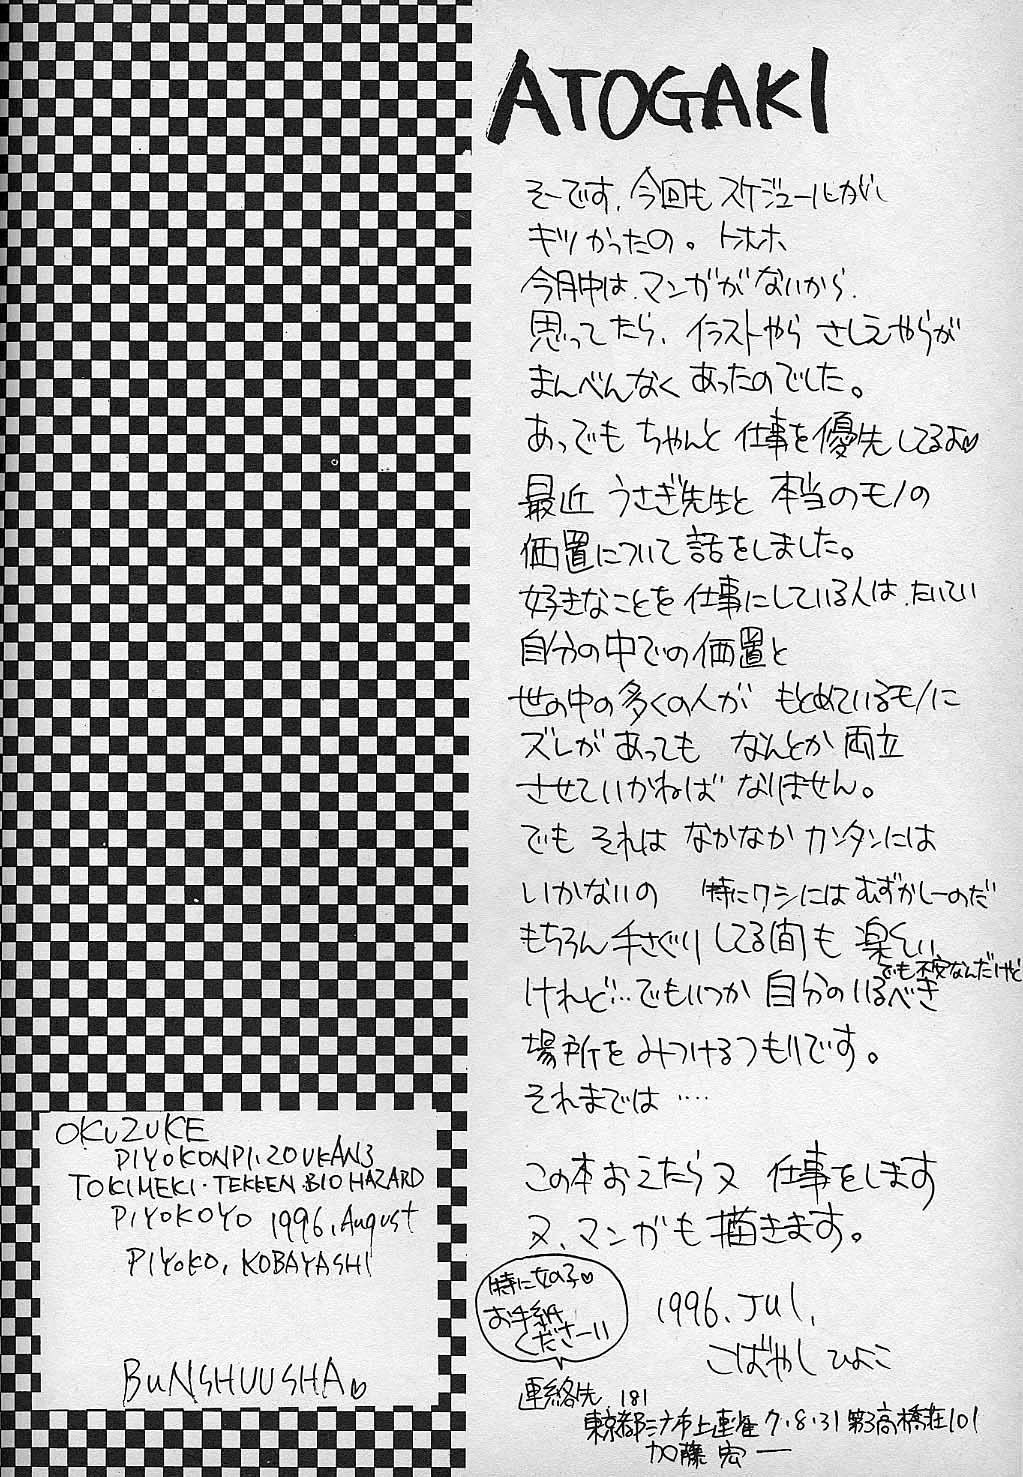 ATOGAKI
そーです.今回も スケジュールがし
キツかったの。トホホ
今月中は、マンガがないから、
思ってたら、イラストやら さしえやらが
まんべんなく あったのでした。
あっでも ちゃんと 仕事を優先してるよ♡
最近 うさぎ先生と 本当のモノの
価置について話をしました。
好きなことを仕事にしている人は、たいてい
自分の中での価置と
世の中の多くの人が もとめているモノに
ズレがあっても なんとか両立
させていかねば なりません。
でも それは なかなか カンタンには
いかないの 特にワシにはむずかしーのだ
もちろん 手さぐりしてる間も 楽しい
でも不安なんだけど
けれど…でもいつか 自分のいるべき
場所を みつけるつもりです。
それまでは ‥‥
この本おえたら又 仕事をします
又、マンガも描きます。
1996. Jul.
こばやし ひよこ
特に女の子♡
お手紙
くださーい
連絡先 181
東京都三ナ市上連雀7・8・31 第3高橋荘101
加藤 宏一
OKUZUKE
PIYOKONPI. ZOUKAN3
TOKIMEKI・TEKKEN・BIO HAZARD
PIYOKOYO 1996, August
PIYOKO, KOBAYASHI
BUNSHUUSHA♡